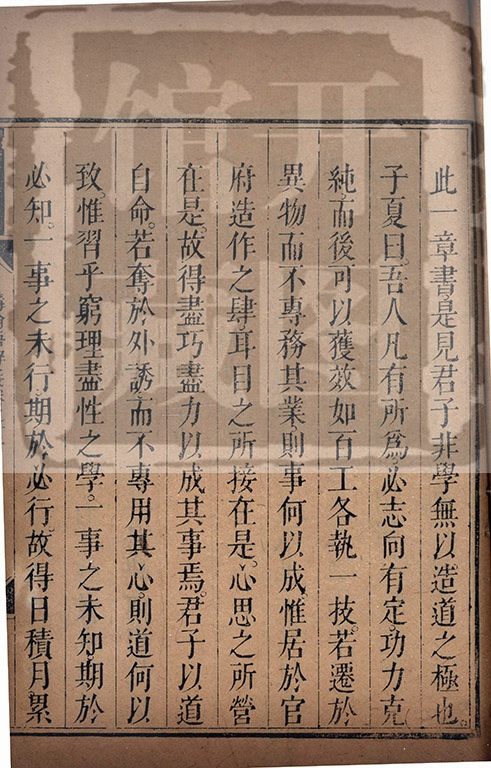 此一章書是見君子非學無以造道之極也
子夏曰吾人凡有所爲必志向有定功力克
純而後可以獲效如百工各執一技若遷於
異物而不專務其業則事何以成惟居於官
府造作之肆耳目之所接在是心思之所營
在是故得盡巧盡力以成其事焉君子以道
自命若奪於外誘而不專用其心則道何以
致惟習乎窮理盡性之學一事之未知期於
必知一事之未行期於必行故得日積月累